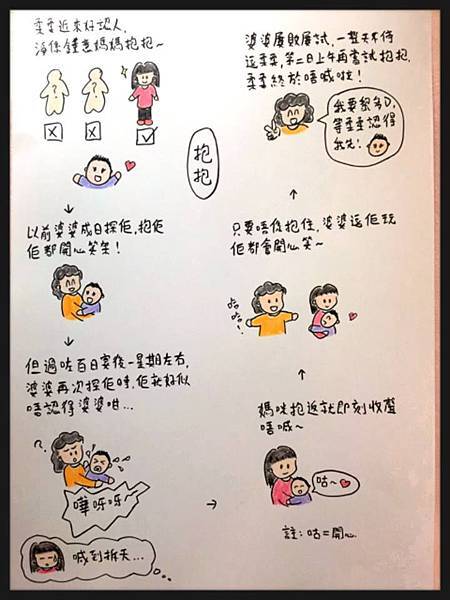 抱抱
柔柔近來好認人,
淨係鍾意媽媽抱抱~
以前婆婆成日探佢,抱佢
佢都開心笑笑!
但過咗百日宴後一星期左右,
婆婆再次探佢時,佢就好似
唔認得婆婆咁...
?
嘩呀呀~
喊到拆天...
媽咪抱返就即刻收聲
唔喊~
咕~
註:咕=開心
只要唔係抱住,婆婆逗佢玩
佢都會開心笑~
哈哈!
婆婆屢敗屢試,一整天不停
逗柔柔,第二日上午再嘗試抱抱,
柔柔終於唔喊啦!
我要黎多D,
等柔柔認得
我先!